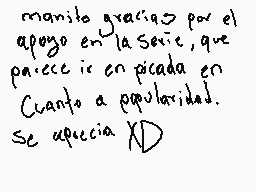 manito gracias por el
apoyo en la serie, que
parece ir en picada en
Cuanto a popularidad.
se aprecia XD